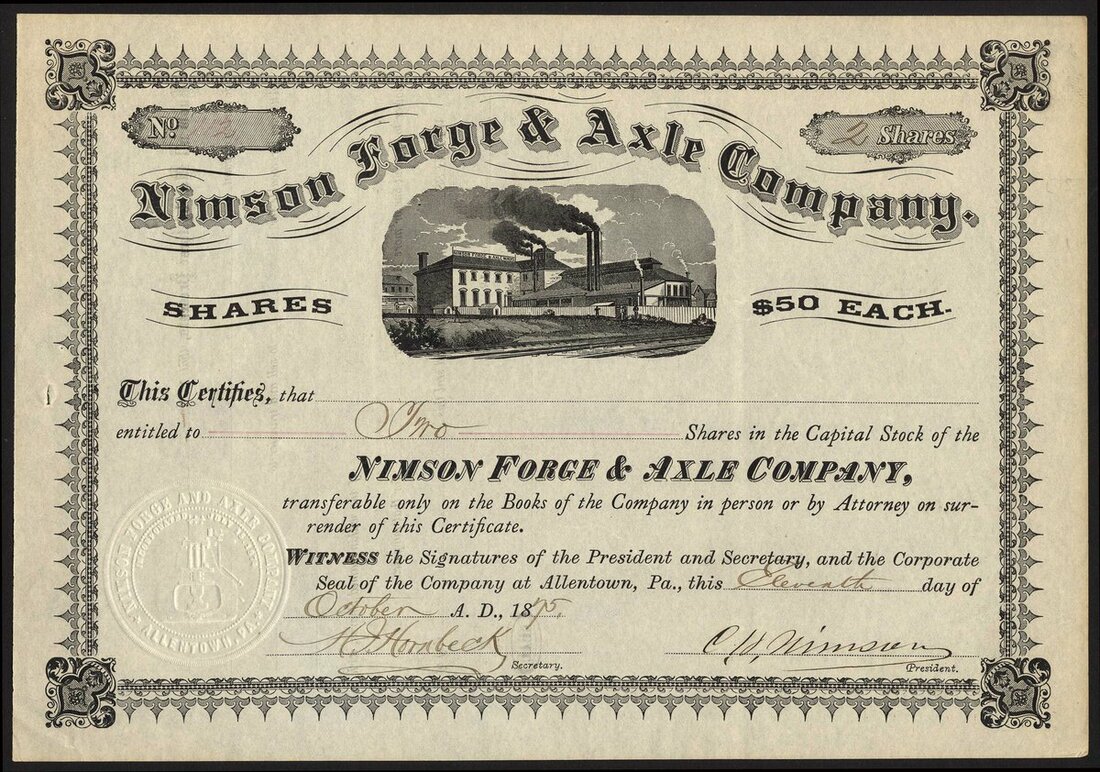 No. 12
2 Shares
Nimson Forge & Axle Company.
SHARES
$50 EACH.
This Certifies, that
entitled to Two Shares in the Capital Stock of the
NIMSON FORGE & AXLE COMPANY,
transferable only on the Books of the Company in person or by Attorney on sur-
render of this Certificate.
WITNESS the Signatures of the President and Secretary, and the Corporate
Seal of the Company at Allentown, Pa., this Eleventh day of
October A. D., 1875.
NIMSON FORGE AND AXLE COMPANY.
ALLENTOWN, PA.
Hornbeck
Secretary.
C W. Nimson
President.